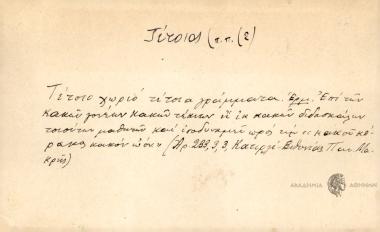 Τέτοιος (π.π. (2)
Τέτοιο χωριό τέτοια γράμματα. Ερμ. Ἐπί τῶν
κακῶν γονέων κακῶν τέκνων ἤ ἐκ κακῶν διδασκάλων
τοιούτων μαθητῶν καί ἰσοδυναμεῖ πρός τήν "κακοῦ κό-
ρακος κακόν ὠόν" (Ἀρ. 283, 3, 3, Βιθυνίας Παν. Μα-
κρῆς)
ΑΚΑΔΗΜΙΑ ΑΘΗΝΩΝ